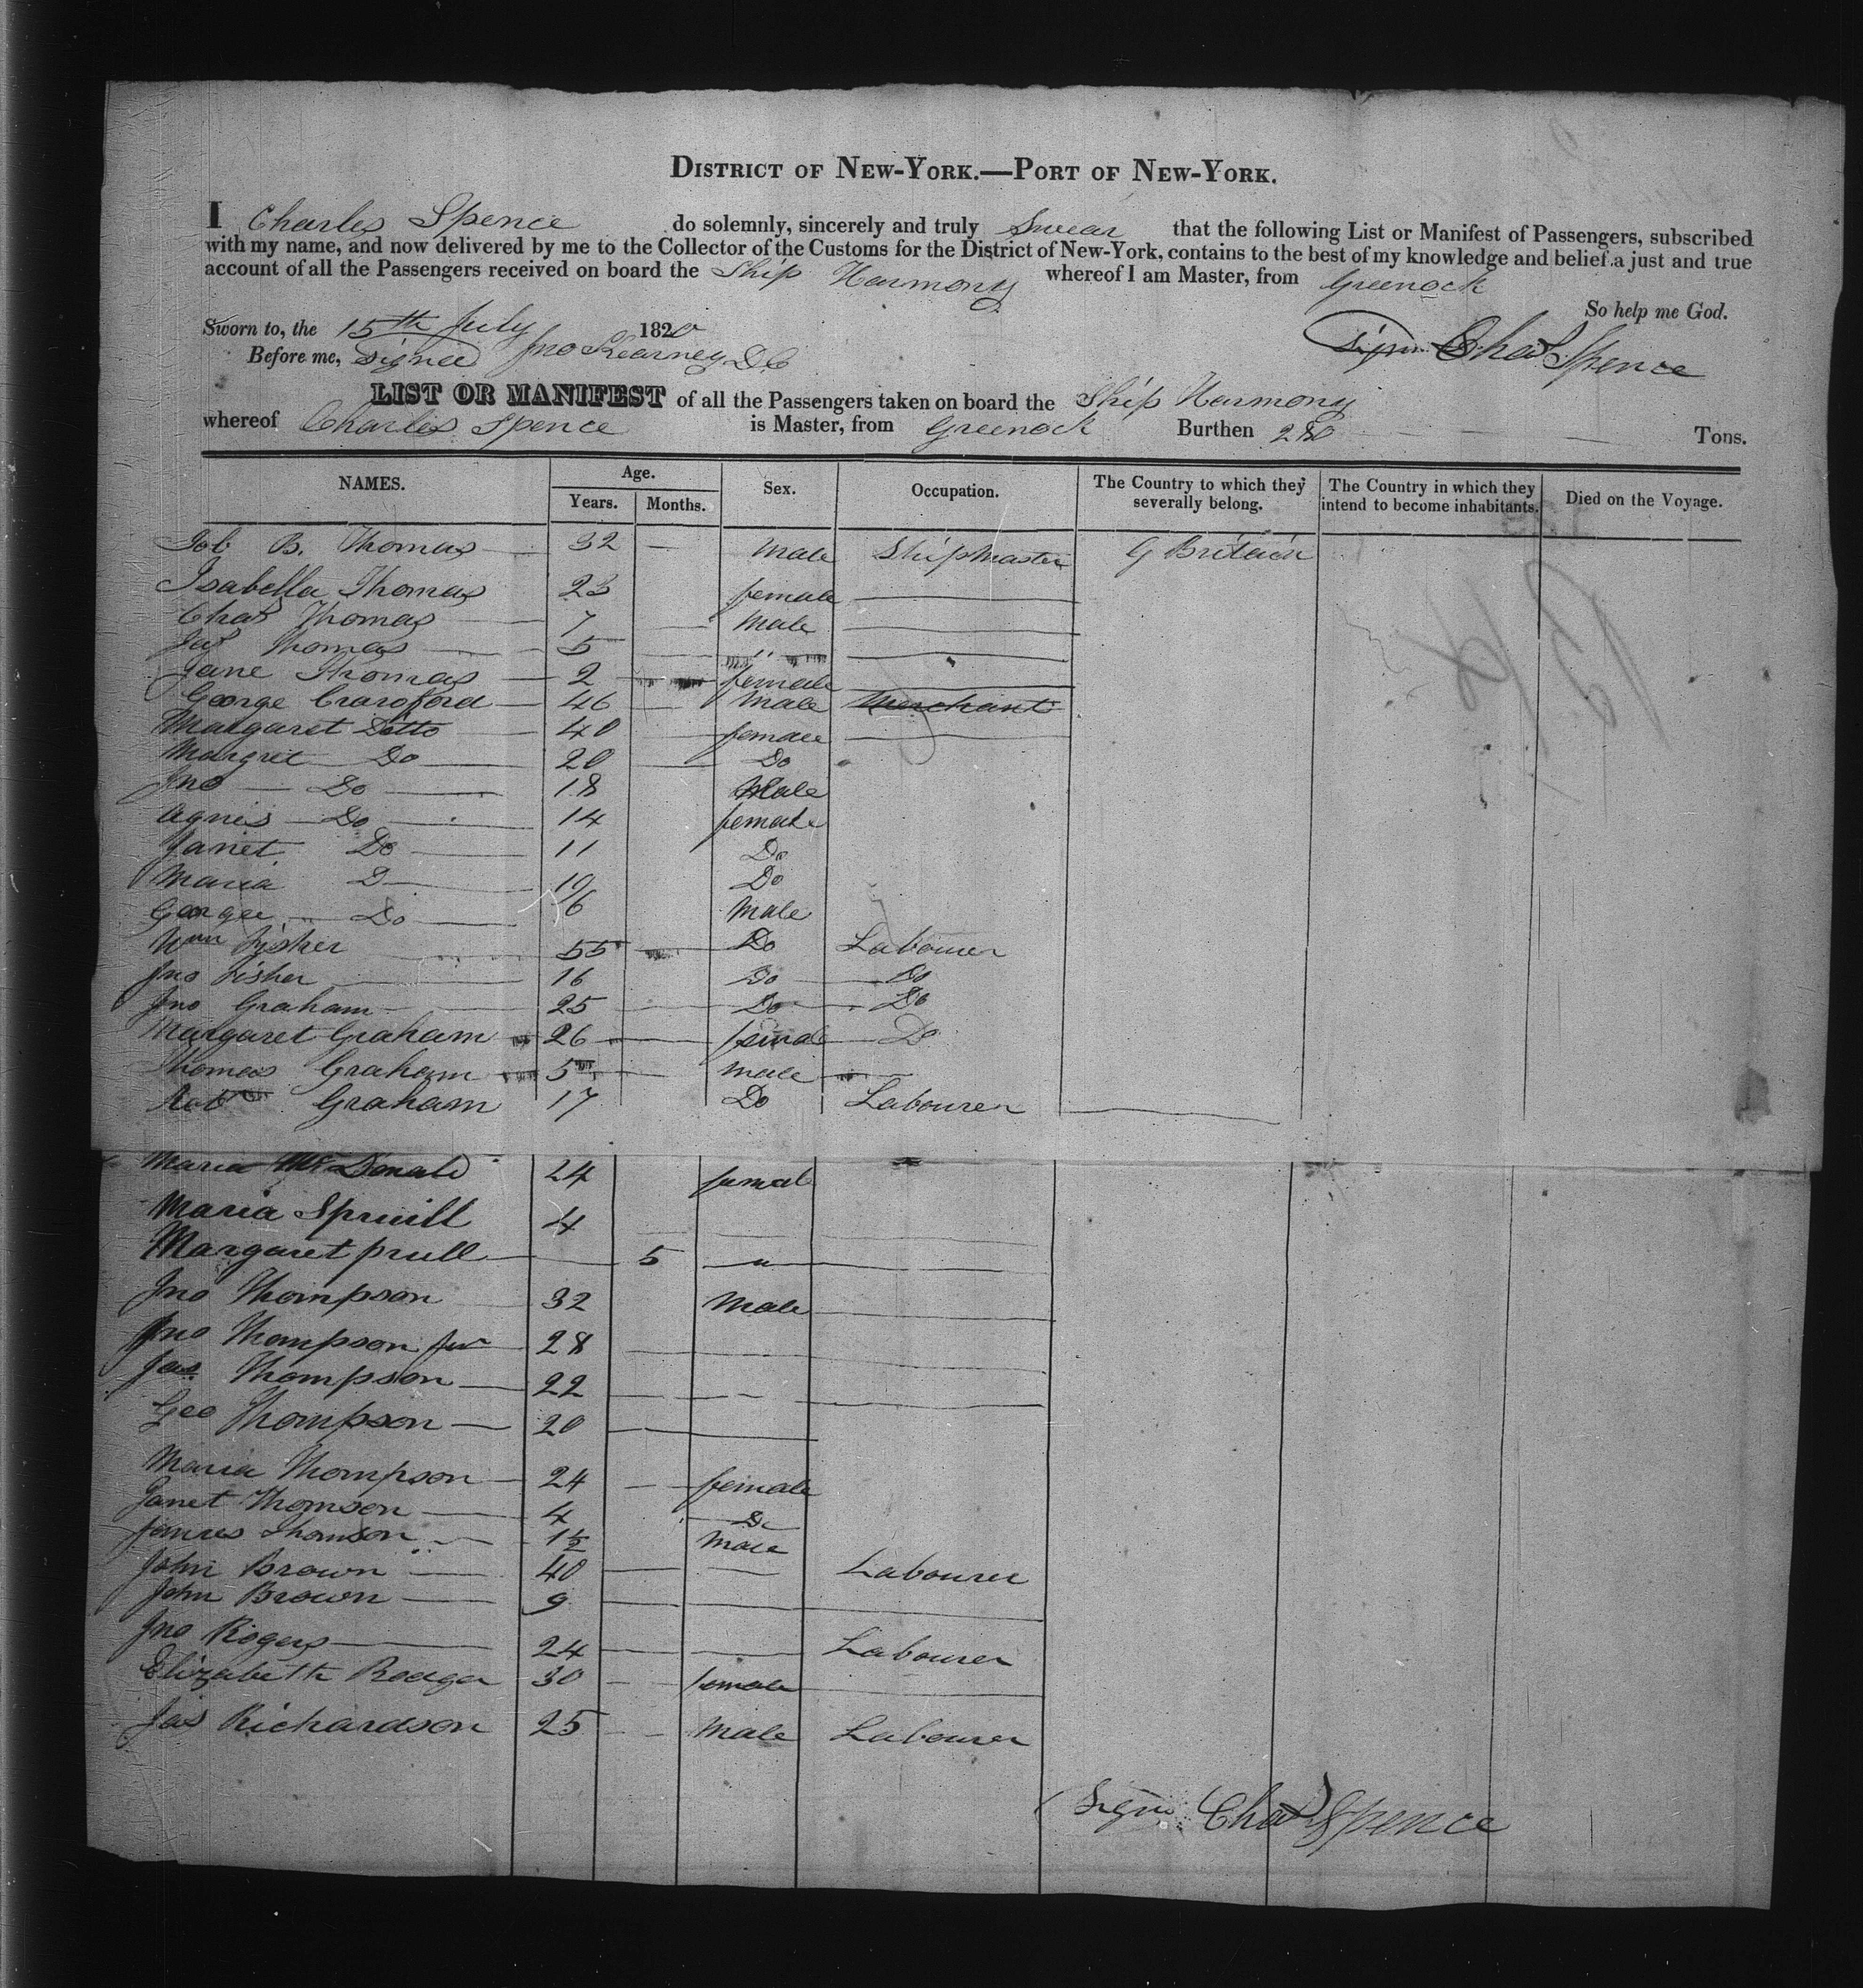 DISTRICT OF NEW-YORK.—PORT OF NEW-YORK.
I Charles Spence do solemnly, sincerely and truly Swear that the following List or Manifest of Passengers, subscribed
with my name, and now delivered by me to the Collector of the Customs for the District of New-York, contains to the best of my knowledge and belief a just and true
account of all the Passengers received on board the Ship Harmony whereof I am Master, from Greenock
So help me God.
Sworn to, the 15th July 1820
Before me, Signed Jno Kearney DC Sign Chas Spence
LIST OR MANIFEST of all the Passengers taken on board the Ship Harmony
whereof Charles Spence is Master, from Greenock Burthen 280 Tons.
NAMES. Age. Years. Months. Sex. Occupation. The Country to which they severally belong. The Country in which they intend to become inhabitants. Died on the Voyage.
Job B. Thomas 32 — Male Shipmaster G Britain
Isabella Thomas 23 female
Chas Thomas 7 Male
Jas Thomas 5 "
Jane Thomas 2 female
George Crawford 46 Male Merchant
Margaret Ditto 40 female
Margret Do 20 Do
Jno Do 18 Male
Agnes Do 14 female
Janet Do 11 Do
Maria D 10 Do
George Do 6 Male
Wm Fisher 55 Do Labourer
Jno Fisher 16 Do Do
Jno Graham 25 Do Do
Margaret Graham 26 female Do
Thomas Graham 5 male
Robt Graham 17 Do Labourer
Maria McDonald 24 femal
Maria Spruill 4
Margaret prull 5 "
Jno Thompson 32 Male
Jno Thompson Jur 28
Jas Thompson 22
Geo Thompson 20
Maria Thompson 24 female
Janet Thomson 4 Do
James Thomson 1½ Male
John Brown 40 Labourer
John Brown 9
Jno Rogers 24 Labourer
Elizabeth Rodger 30 female
Jas Richardson 25 Male Labourer
Sign Chas Spence